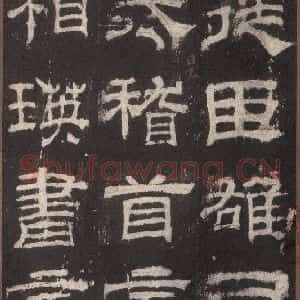 徒臣雄司
戒稽首言
相瑛書言
Shufawang.CN